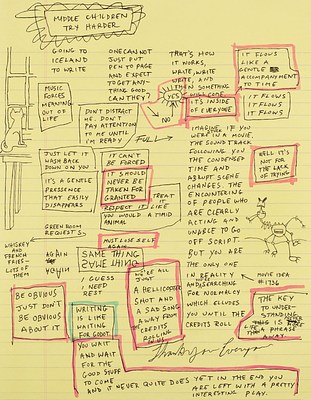 MIDDLE CHILDREN
TRY HARDER
GOING TO
ICELAND
TO WRITE
ONE CAN NOT
JUST PUT
PEN TO PAGE
AND EXPECT
TO GET ANY-
THING GOOD
CAN THEY?
THAT'S HOW
IT WORKS,
WRITE, WRITE
WRITE, AND
THEN SOMETHING
WILL COME
YES
NO
IT'S INSIDE
OF EVERYONE
IT FLOWS
LIKE A
GENTLE
ACCOMPANYMENT
TO TIME
IT FLOWS
IT FLOWS
IT FLOWS
MUSIC
FORCES
MEANING
OUT OF
LIFE
DON'T DISTRACT
ME. DON'T
PAY ATTENTION
TO ME UNTIL
I'M READY
FULL
JUST LET IT
WASH BACK
DOWN ON YOU
IT'S A GENTLE
PRESENCE
THAT EASILY
DISAPPEARS
IT CAN'T
BE FORCED
IT SHOULD
NEVER BE
TAKEN FOR
GRANTED
TREAT
IT
RESPECT IT LIKE
YOU WOULD A TIMID
ANIMAL
IMAGINE IF YOU
WERE IN A MOVIE,
THE SOUND TRACK
FOLLOWING YOU
THE CONDENSED
TIME AND
ABRUPT SCENE
CHANGES. THE
ENCOUNTERING
OF PEOPLE WHO
ARE CLEARLY
ACTING AND
UNABLE TO GO
OFF SCRIPT.
BUT YOU ARE
THE ONLY ONE
IN REALITY
AND SEARCHING
FOR NORMALCY
WHICH ELUDES
YOU UNTIL THE
CREDITS ROLL
WELL IT'S
NOT FOR THE
LACK OF
TRYING
MOVIE IDEA
#1736
GREEN ROOM
REQUESTS-
WHISKEY
AND
FRENCH
FRIES
LOTS OF
THEM
MUST LOSE SELF
AGAIN
AGAIN
SAME THING
I GUESS
I NEED
REST
BE OBVIOUS
JUST DON'T
BE OBVIOUS
ABOUT IT
WRITING
IS LIKE
WAITING
FOR GODOT.
YOU WAIT
AND WAIT
FOR THE
GOOD STUFF
TO COME
AND IT NEVER QUITE DOES YET IN THE END YOU
ARE LEFT WITH A PRETTY
INTERESTING PLAY.
WE'RE ALL
JUST
A HELICOPTER
SHOT AND
A SAD SONG
AWAY FROM
THE CREDITS
ROLLING
ON US.
THE KEY
TO UNDER-
STANDING
IS
A
PHRASE
AWAY.